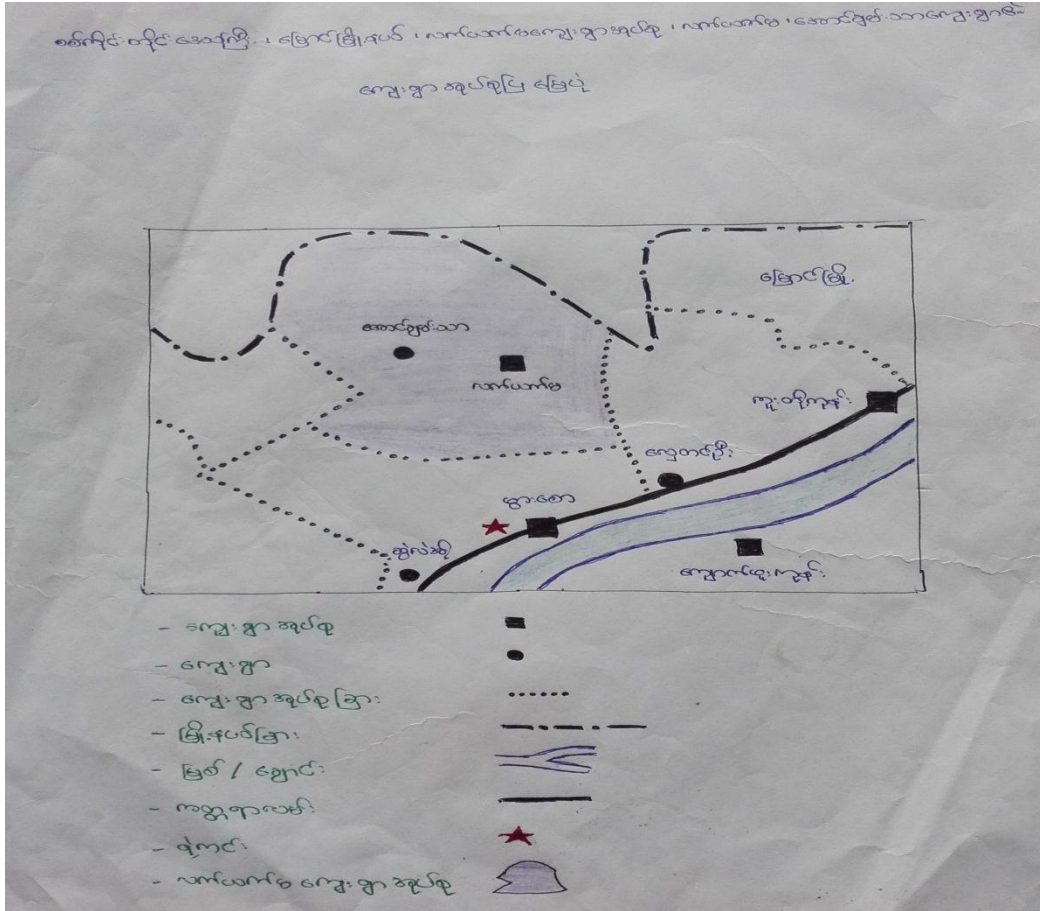 စစ်ကိုင်းတိုင်းဒေသကြီး ၊ မြောင်မြို့နယ် ၊ လက်ယက်မကျေးရွာအုပ်စု ၊ လက်ယက်မ ၊ အောင်ချမ်းသာကျေးရွာ
ကျေးရွာအုပ်စုပြ မြေပုံ
မြောင်မြို့
အောင်ချမ်းသာ
လက်ယက်မ
ကူးတို့ကုန်း
လှေတင်ဦး
မွားစော
ဆွဲလဲအို
ကျောက်ထူးကုန်း
- ကျေးရွာအုပ်စု
- ကျေးရွာ
- ကျေးရွာအုပ်စုခြား
- မြို့နယ်ခြား
- မြစ် / ချောင်း
- ကတ္တရာလမ်း
- ရဲကင်း
- လက်ယက်မ ကျေးရွာအုပ်စု